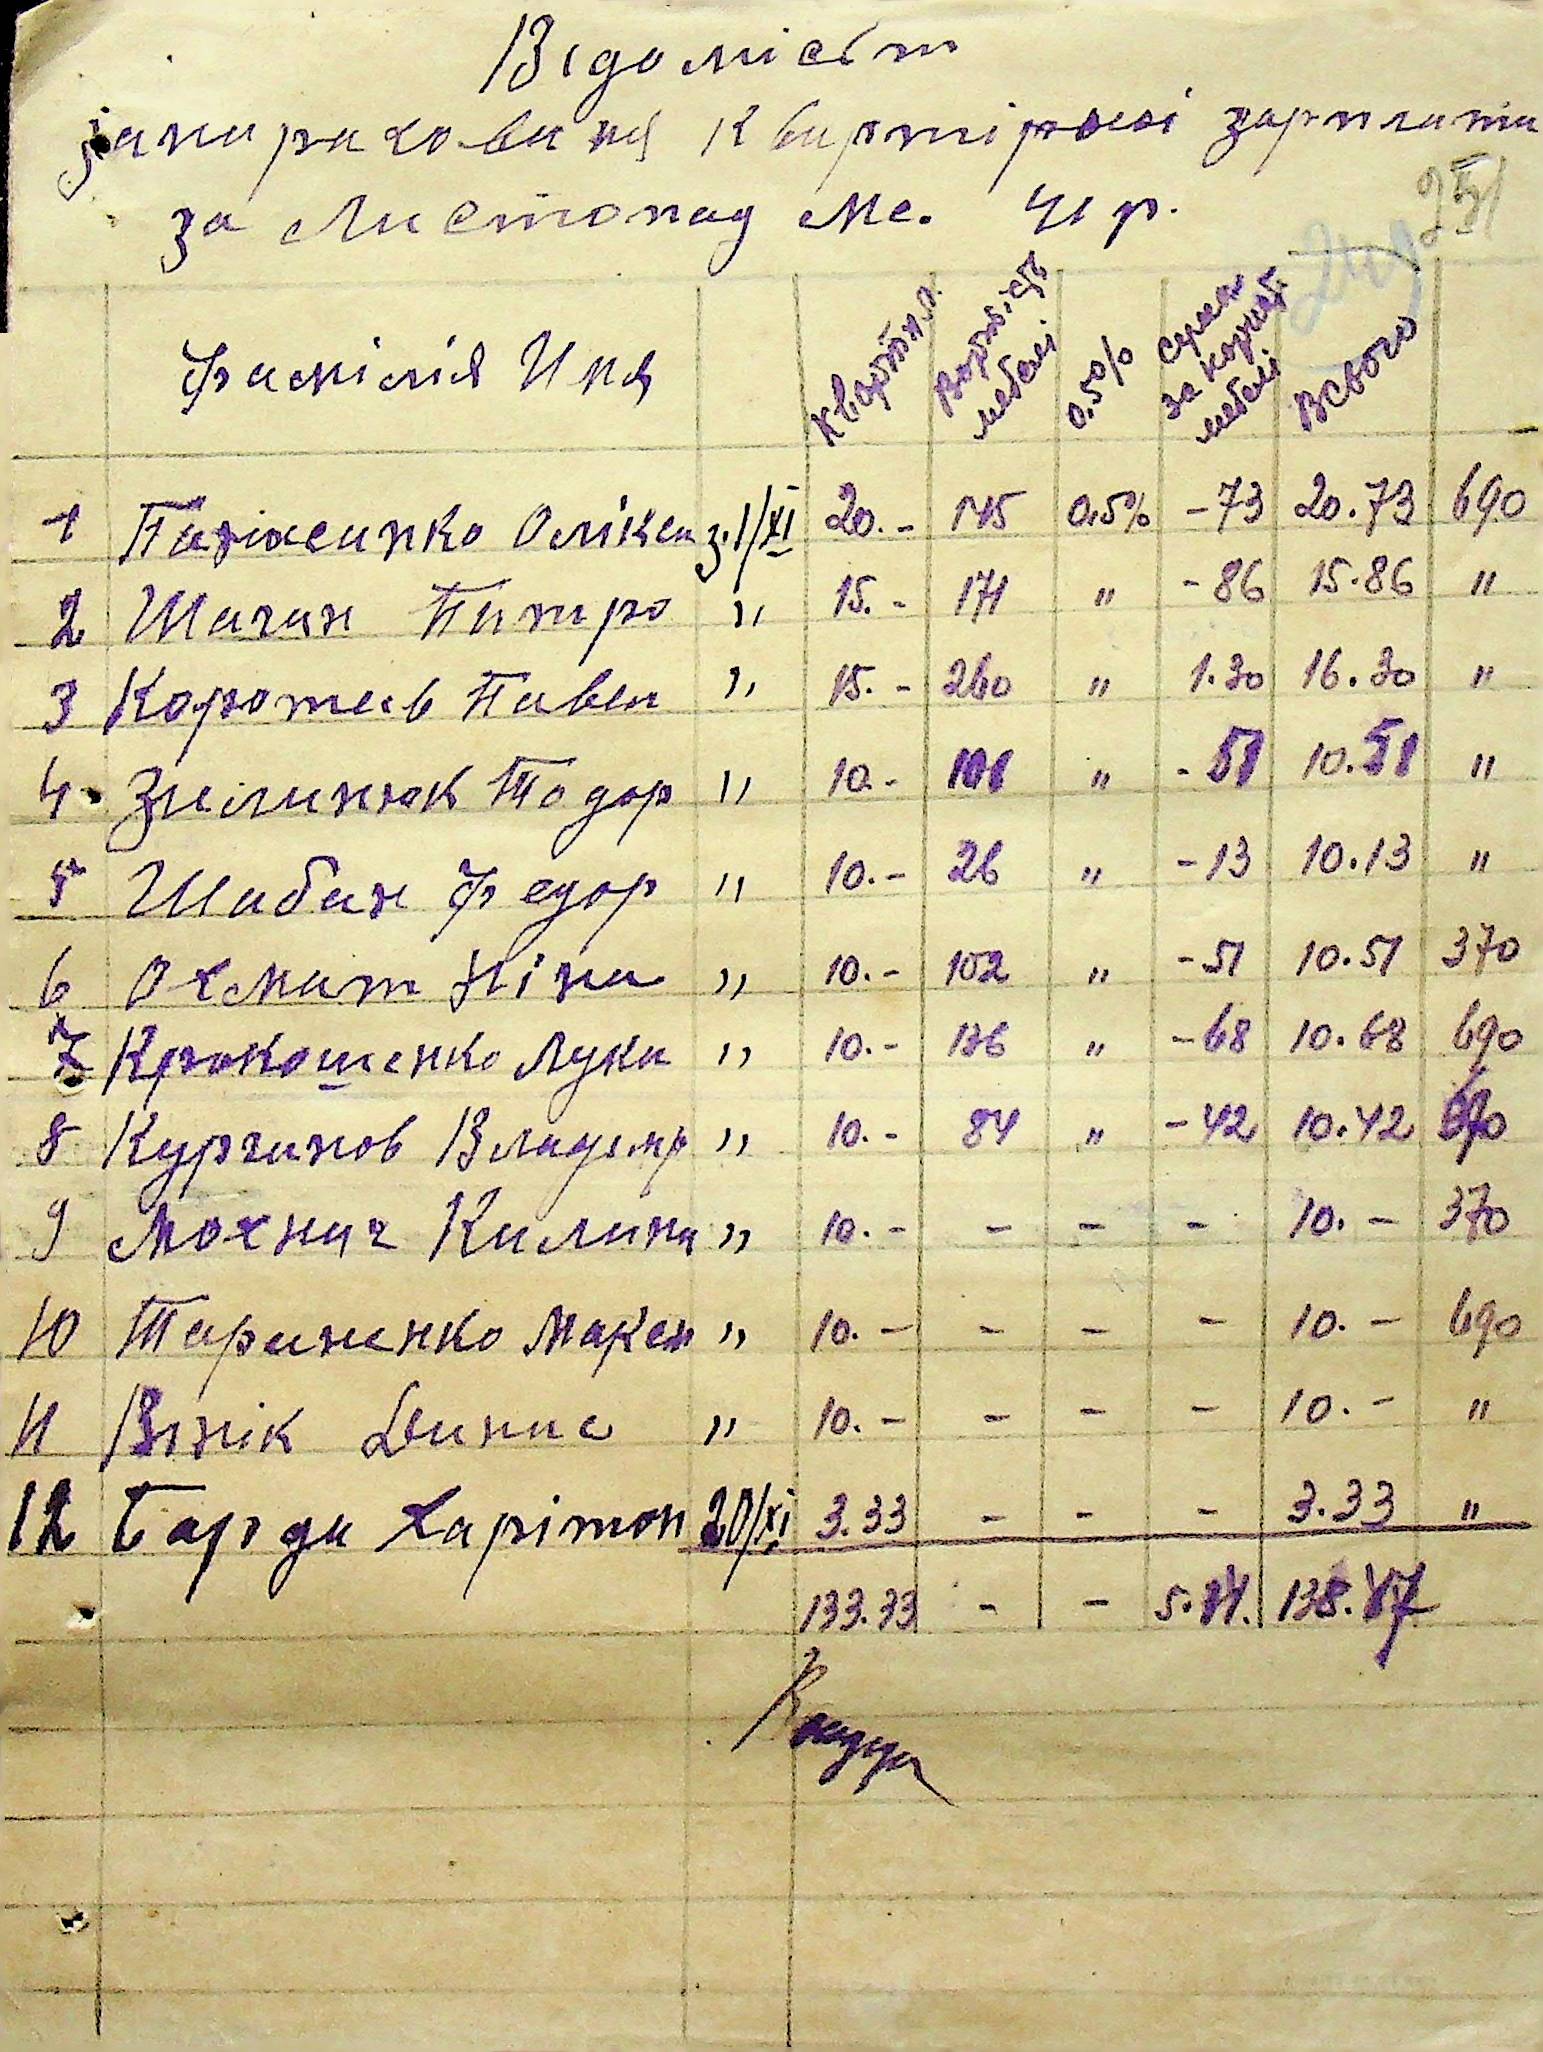 Відомість
за Листопад мс. 41 р.
Фамілія Имя
Квартпл. Вартість мебелі 0,5% Сумма за корист мебелі Всього
1 Олікса з 1/XI 20.- 145 0,5% -73 20.73 690
2 Шаган Питро " 15.- 171 " -86 15.86 "
3 Коротеев Павел " 15.- 260 " 1.30 16.30 "
4 Зилинюк Тодор " 10.- 101 " -51 10.51 "
5 Шабан Федор " 10.- 26 " -13 10.13 "
6 Охмат Ніна " 10.- 102 " -51 10.51 370
7 Крокошенко Лука " 10.- 136 " -68 10.68 690
8 Курганов Владемр " 10.- 84 " -42 10.42
9 Мохнач Килина " 10.- - - - 10.- 370
10 Тараненко Максем " 10.- - - - 10.- 690
11 Вінік Данис " 10.- - - - 10.- "
12 Гарда Харітон 20/XI 3.33 - - - 3.33 "
133.33 - -